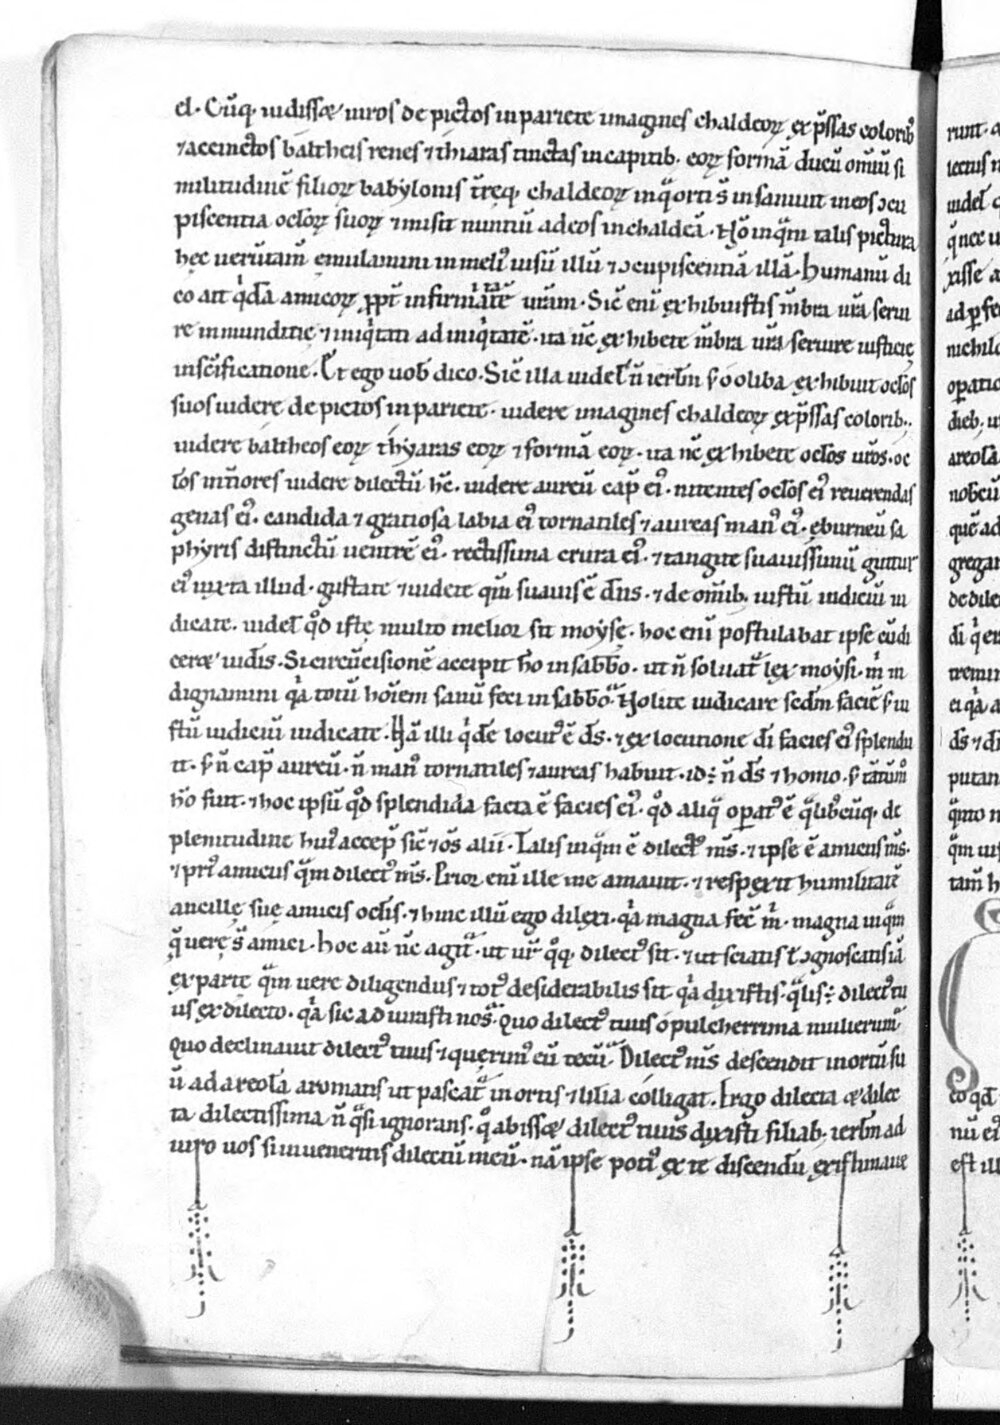 el. Cūq; uidisset uiros depictos in pariete imagines chaldeoꝝ exp̄ssas coloribꝰ
⁊ accinctos baltheis renes ⁊ thiaras tinctas in capitib; eoꝝ formā ducū om̄iū si
militudinē filioꝝ babylonis t̄req; chaldeoꝝ in q̄ orti s̄ insaniuit in eos ↄcu
piscentia oc̄loꝝ suoꝝ ⁊ misit nuntiū ad eos in chaldeā. Nō inquā talis pictura
hęc uerūtam̄ emulamini in meliꝰ uisū illū ⁊ ↄcupiscentiā illā. Humanū di
co ait q̇dā amicoꝝ ꝓpt̄ infirmitatē urām. Sic̄ eni exhibuistis m̄bra ur̄a serui
re inmunditię ⁊ iniq̇tati ad iniq̇tatē. ita nc̄ exhibete m̄bra ur̄a seruire iusticię
in sc̄ificatione. Et ego uob̄ dico. Sic̄ illa uidel̄ n̄ ierl̄m s; ooliba exhibuit oc̄los
suos uidere depictos in pariete. uidere imagines chaldeoꝝ exp̄ssas colorib;.
uidere baltheos eoꝝ thyaras eoꝝ ⁊ formā eoꝝ. ita nc̄ exhibete oc̄los ur̄os. oc
l̄os int̄iores uidere dilectū hc̄. uidere aureū cap̄ eiꝰ. nitentes oc̄los eiꝰ reuerendas
genas eiꝰ. candida ⁊ gratiosa labia eiꝰ tornatiles ⁊ aureas manꝰ eiꝰ. eburneū sa
phyris distinctū uentrē eiꝰ. rectissima crura eiꝰ. ⁊ tangite suauissimū guttur
eiꝰ iuxta illud. gustate ⁊ uidete qm̄ suauis ē dn̄s. ⁊ de om̄ib; iustū iudiciū iu
dicate. uidel̄ qd̄ iste multo melior sit moyse. hoc enī postulabat ipse cū di
ceret iudeis. Si circūcisionē accipit hō in sabb̄o. ut n̄ soluat̄ lex moysi. m̄ in
dignamini q̇a totū hoīem sanū feci in sabb̄o. Nolite iudicare sedm̄ faciē s; iu
stū iudiciū iudicate. Nā illi q̇dē locutꝰ ē ds̄. ⁊ ex locutione di facies eiꝰ splendu
it. s; n̄ cap̄ aureū. n̄ manꝰ tornatiles ⁊ aureas habuit. id ÷ n̄ ds̄ ⁊ homo. s; tantūm̄
hō fuit. ⁊ hoc ipsū qd̄ splendida facta ē facies eiꝰ. qd̄ aliq̄ opatꝰ ē q̄libcūq; de
plenitudine huiꝰ accep̄ sic̄ ⁊ om̄s alii. Talis inquā ē dilectꝰ m̄s. ⁊ ipse ē amicus m̄s.
⁊ priꝰ amicus quā dilectꝰ m̄s. Prior enī ille me amauit. ⁊ respexit humilitatē
ancillę suę amicis oc̄lis. ⁊ hinc illū ego dilexi. q̇a magna fec̄ m̄. magna inquā
q̄ uere s̄ amici. hoc aū nc̄ agit̄. ut ur̄ qq; dilectꝰ sit. ⁊ ut sciatis ł ↄgnoscatis iā
ex parte quā uere diligendus ⁊ totꝰ desiderabilis sit q̇a dixistis. qlis ÷ dilectꝰ tu
us ex dilecto. q̇a sic adiurasti nos. Quo dilectꝰ tuus o pulcherrima mulierum
Quo declinauit dilectꝰ tuus ⁊ querimꝰ eū tecū. Dilectꝰ m̄s descendit in ortū su
ū ad areol̄a aromatis ut pascat̄ in ortis ⁊ lilia colligat. Ergo dilecta et dilec
ta dilectissima n̄ quasi ignorans. q̊ abisset dilectꝰ tuus dixisti filiab; ierl̄m ad
iuro uos si inueneritis dilectū meū. nā ipse potiꝰ ex te discendū existimaue